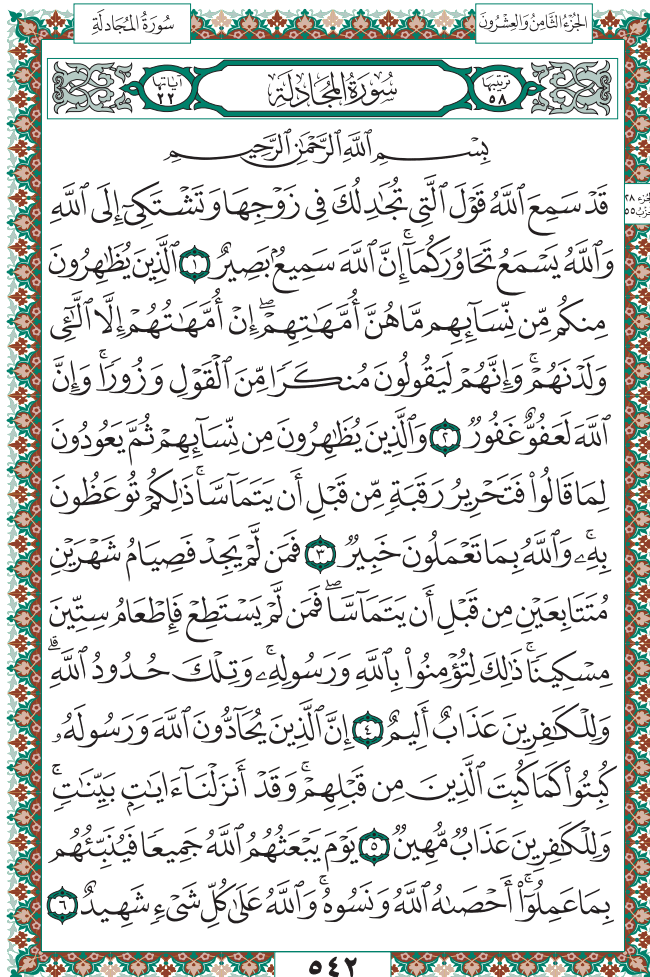 الجُزْءُ الثَّامِنُ وَالعِشْرُونَ
سُورَةُ المُجَادلَةِ
تَرْتِيبُهَا ٥٨
سُورَةُ المُجَادلَةِ
آيَاتُهَا ٢٢
بِسْمِ ٱللَّهِ ٱلرَّحْمَٰنِ ٱلرَّحِيمِ
قَدْ سَمِعَ ٱللَّهُ قَوْلَ ٱلَّتِي تُجَٰدِلُكَ فِي زَوْجِهَا وَتَشْتَكِيٓ إِلَى ٱللَّهِ
وَٱللَّهُ يَسْمَعُ تَحَاوُرَكُمَآۚ إِنَّ ٱللَّهَ سَمِيعُۢ بَصِيرٌ ١ ٱلَّذِينَ يُظَٰهِرُونَ
مِنكُم مِّن نِّسَآئِهِم مَّا هُنَّ أُمَّهَٰتِهِمْۖ إِنْ أُمَّهَٰتُهُمْ إِلَّا ٱلَّٰٓـِٔي
وَلَدْنَهُمْۚ وَإِنَّهُمْ لَيَقُولُونَ مُنكَرٗا مِّنَ ٱلْقَوْلِ وَزُورٗاۚ وَإِنَّ
ٱللَّهَ لَعَفُوٌّ غَفُورٞ ٢ وَٱلَّذِينَ يُظَٰهِرُونَ مِن نِّسَآئِهِمْ ثُمَّ يَعُودُونَ
لِمَا قَالُوا۟ فَتَحْرِيرُ رَقَبَةٖ مِّن قَبْلِ أَن يَتَمَآسَّاۚ ذَٰلِكُمْ تُوعَظُونَ
بِهِۦۚ وَٱللَّهُ بِمَا تَعْمَلُونَ خَبِيرٞ ٣ فَمَن لَّمْ يَجِدْ فَصِيَامُ شَهْرَيْنِ
مُتَتَابِعَيْنِ مِن قَبْلِ أَن يَتَمَآسَّاۖ فَمَن لَّمْ يَسْتَطِعْ فَإِطْعَامُ سِتِّينَ
مِسْكِينٗاۚ ذَٰلِكَ لِتُؤْمِنُوا۟ بِٱللَّهِ وَرَسُولِهِۦۚ وَتِلْكَ حُدُودُ ٱللَّهِۗ
وَلِلْكَٰفِرِينَ عَذَابٌ أَلِيمٌ ٤ إِنَّ ٱلَّذِينَ يُحَآدُّونَ ٱللَّهَ وَرَسُولَهُۥ
كُبِتُوا۟ كَمَا كُبِتَ ٱلَّذِينَ مِن قَبْلِهِمْۚ وَقَدْ أَنزَلْنَآ ءَايَٰتِۭ بَيِّنَٰتٖۚ
وَلِلْكَٰفِرِينَ عَذَابٞ مُّهِينٞ ٥ يَوْمَ يَبْعَثُهُمُ ٱللَّهُ جَمِيعٗا فَيُنَبِّئُهُم
بِمَا عَمِلُوٓا۟ۚ أَحْصَىٰهُ ٱللَّهُ وَنَسُوهُۚ وَٱللَّهُ عَلَىٰ كُلِّ شَيْءٖ شَهِيدٌ ٦
٥٤٢